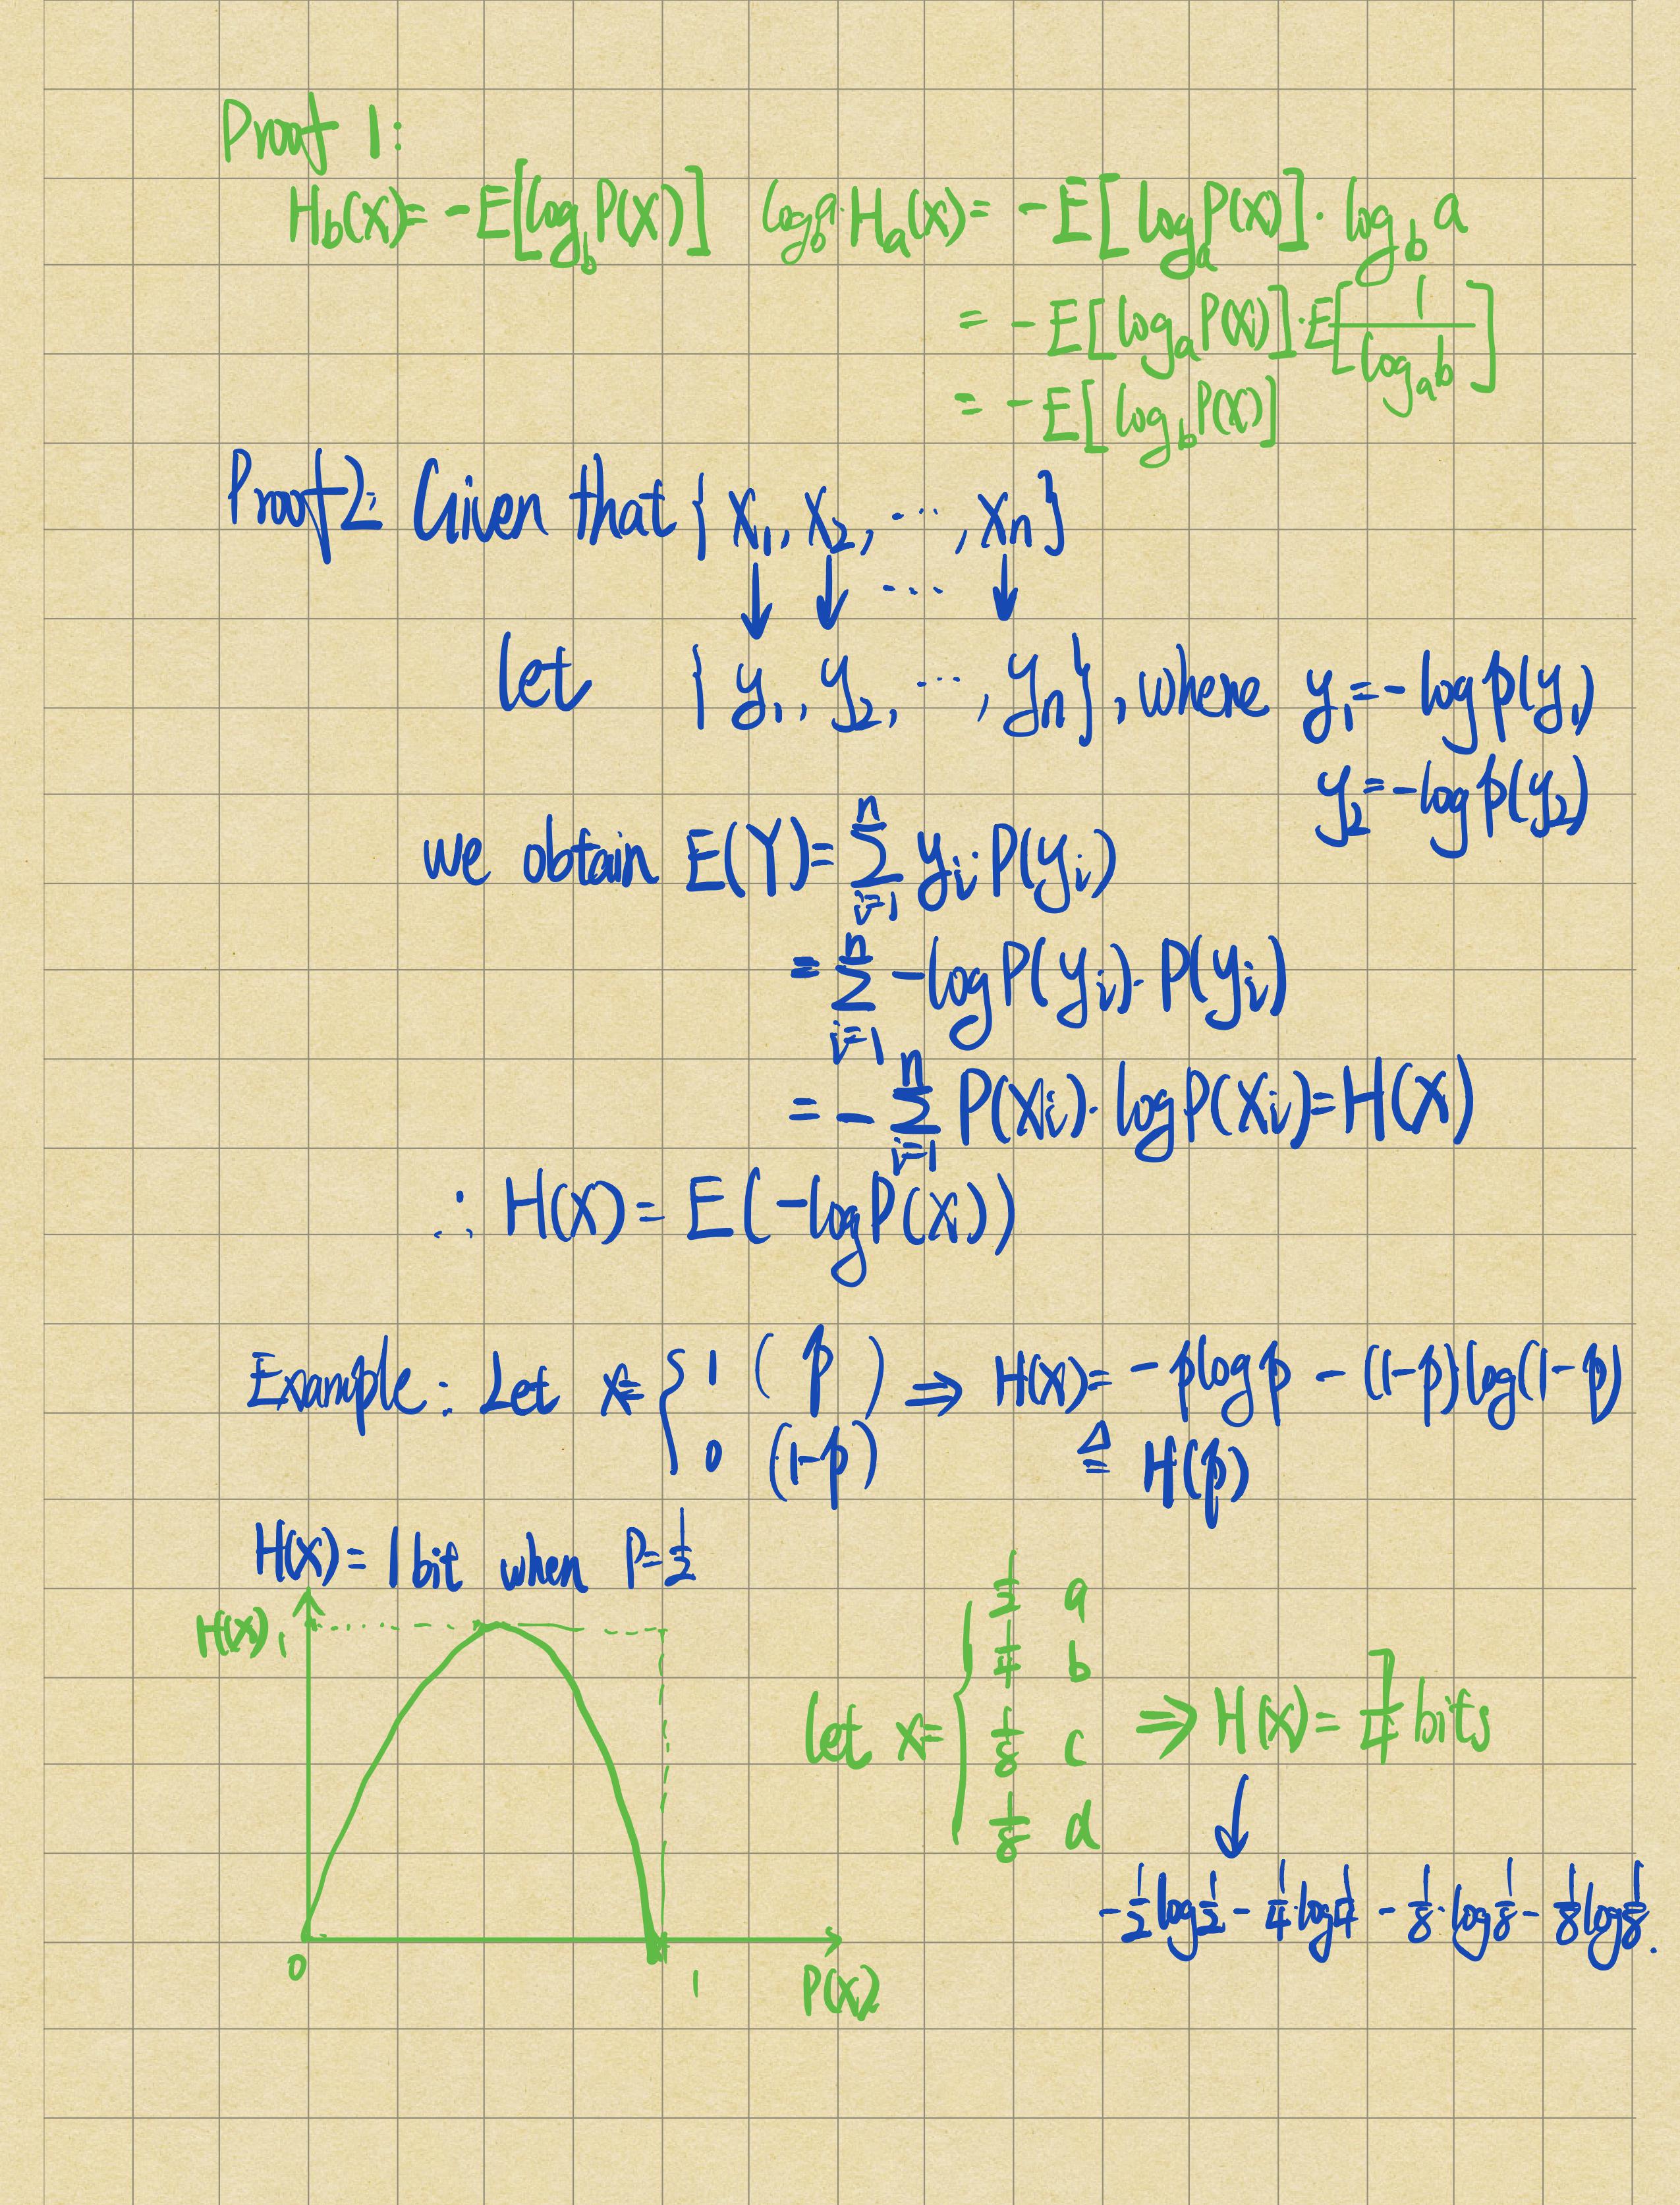 Proof 1:
H_b(X) = -E[log_b P(X)] log_b a · H_a(X) = -E[log_a P(X)] · log_b a
= -E[log_a P(X)] · E[1/log_a b]
= -E[log_b P(X)]
Proof 2: Given that {x_1, x_2, ···, x_n}
↓ ↓ ··· ↓
let {y_1, y_2, ···, y_n}, where y_1 = -log p(y_1)
y_2 = -log p(y_2)
we obtain E(Y) = Σ_{i=1}^{n} y_i · P(y_i)
= Σ_{i=1}^{n} -log P(y_i) · P(y_i)
= -Σ_{i=1}^{n} P(x_i) · log P(x_i) = H(X)
∴ H(X) = E(-log P(X))
Example: Let X = { 1 (p) ⇒ H(X) = -p log p - (1-p) log(1-p)
0 (1-p) ≜ H(p)
H(X) = 1 bit when P = 1/2
H(X)
1
0
1
P(X)
let X = { 1/2 a
1/4 b
1/8 c
1/8 d
⇒ H(X) = 7/4 bits
↓
-1/2 log 1/2 - 1/4 · log 1/4 - 1/8 · log 1/8 - 1/8 log 1/8.